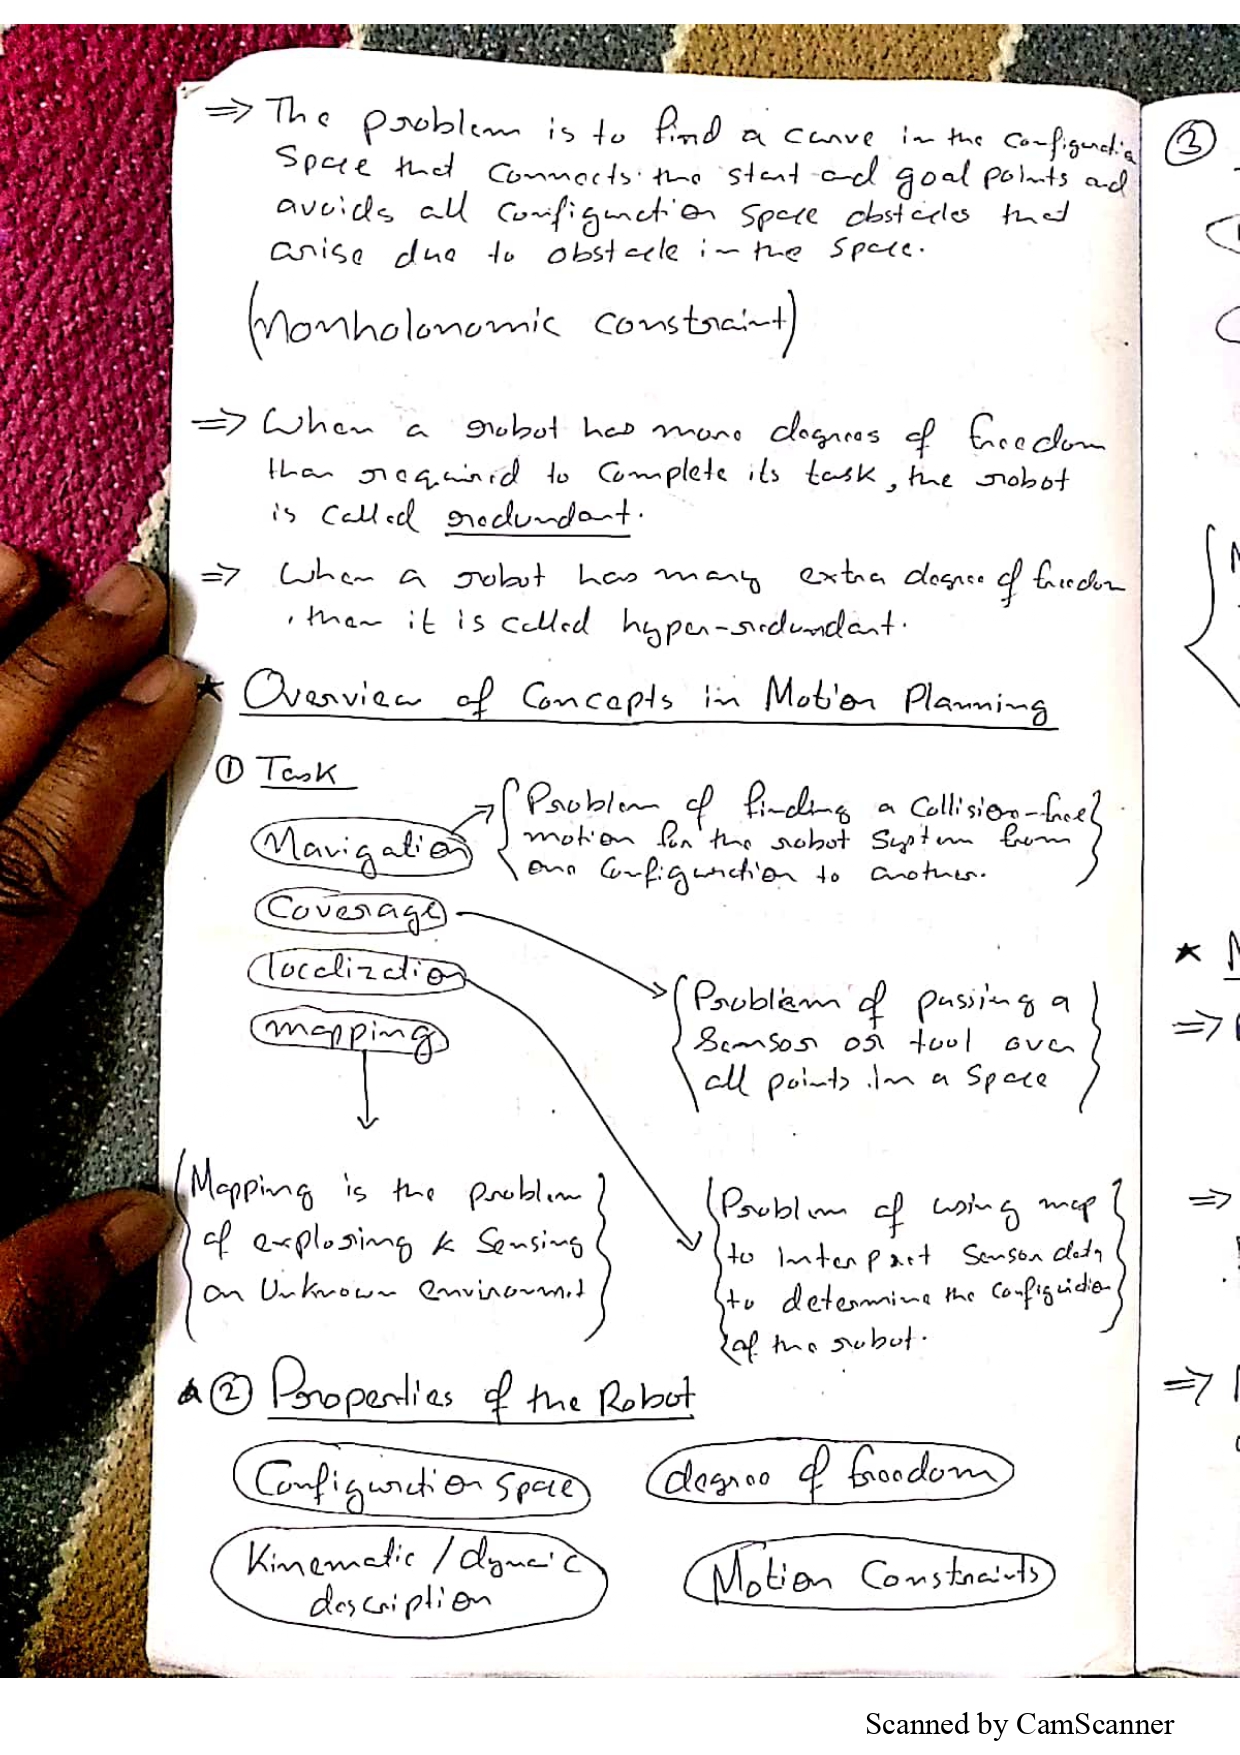 ⇒ The problem is to find a curve in the configuration
space that connects the start and goal points and
avoids all configuration space obstacles that
arise due to obstacle in the space.
(Nonholonomic constraint)
⇒ When a robot has more degrees of freedom
than required to complete its task, the robot
is called redundant.
⇒ When a robot has many extra degree of freedom
, then it is called hyper-redundant.
★ Overview of Concepts in Motion Planning
① Task
Navigation
{Problem of finding a Collision-free
motion for the robot System from
one configuration to another.}
Coverage
localization
mapping
{Problem of passing a
Sensor or tool over
all points in a space}
{Mapping is the problem
of exploring & Sensing
an Unknown environment}
{Problem of using map
to interpret sensor data
to determine the configuration
of the robot.}
② Properties of the Robot
Configuration space
degree of freedom
Kinematic / dynamic
description
Motion Constraints
③
★
⇒
⇒
⇒
Scanned by CamScanner